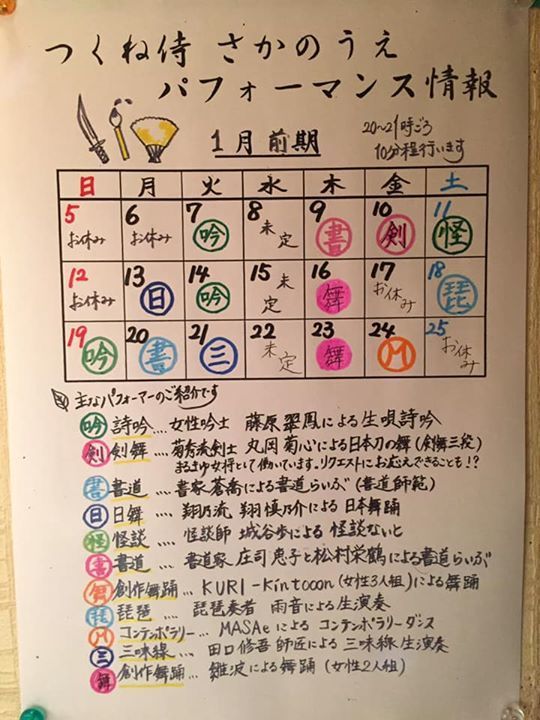 つくね侍 さかのうえ
パフォーマンス情報
1月前期
20～21時ごろ
10分程行います
日 月 火 水 木 金 土
5 お休み 6 お休み 7 吟 8 未定 9 書 10 剣 11 怪
12 お休み 13 日 14 吟 15 未定 16 舞 17 お休み 18 琵
19 吟 20 書 21 三 22 未定 23 舞 24 M 25 お休み
主なパフォーマーのご紹介です
吟 詩吟…女性吟士 藤原翠鳳による生唄詩吟
剣 剣舞…菊秀流剣士 丸岡菊心による日本刀の舞(剣舞三段)
おまゆ女将として働いています。リクエストにお応えできることも!?
書 書道…書家蒼喬による書道らいぶ(書道師範)
日 日舞…翔乃流 翔慎乃介による日本舞踊
怪 怪談…怪談師 城谷歩による怪談ないと
書 書道…書道家 庄司恵子と松村栄鶴による書道らいぶ
舞 創作舞踊…KURI-Kintoon(女性3人組)による舞踊
琵 琵琶…琵琶奏者 雨音による生演奏
M コンテンポラリー…MASAeによるコンテンポラリーダンス
三 三味線…田口修吾師匠による三味線生演奏
舞 創作舞踊…難波による舞踊(女性2人組)